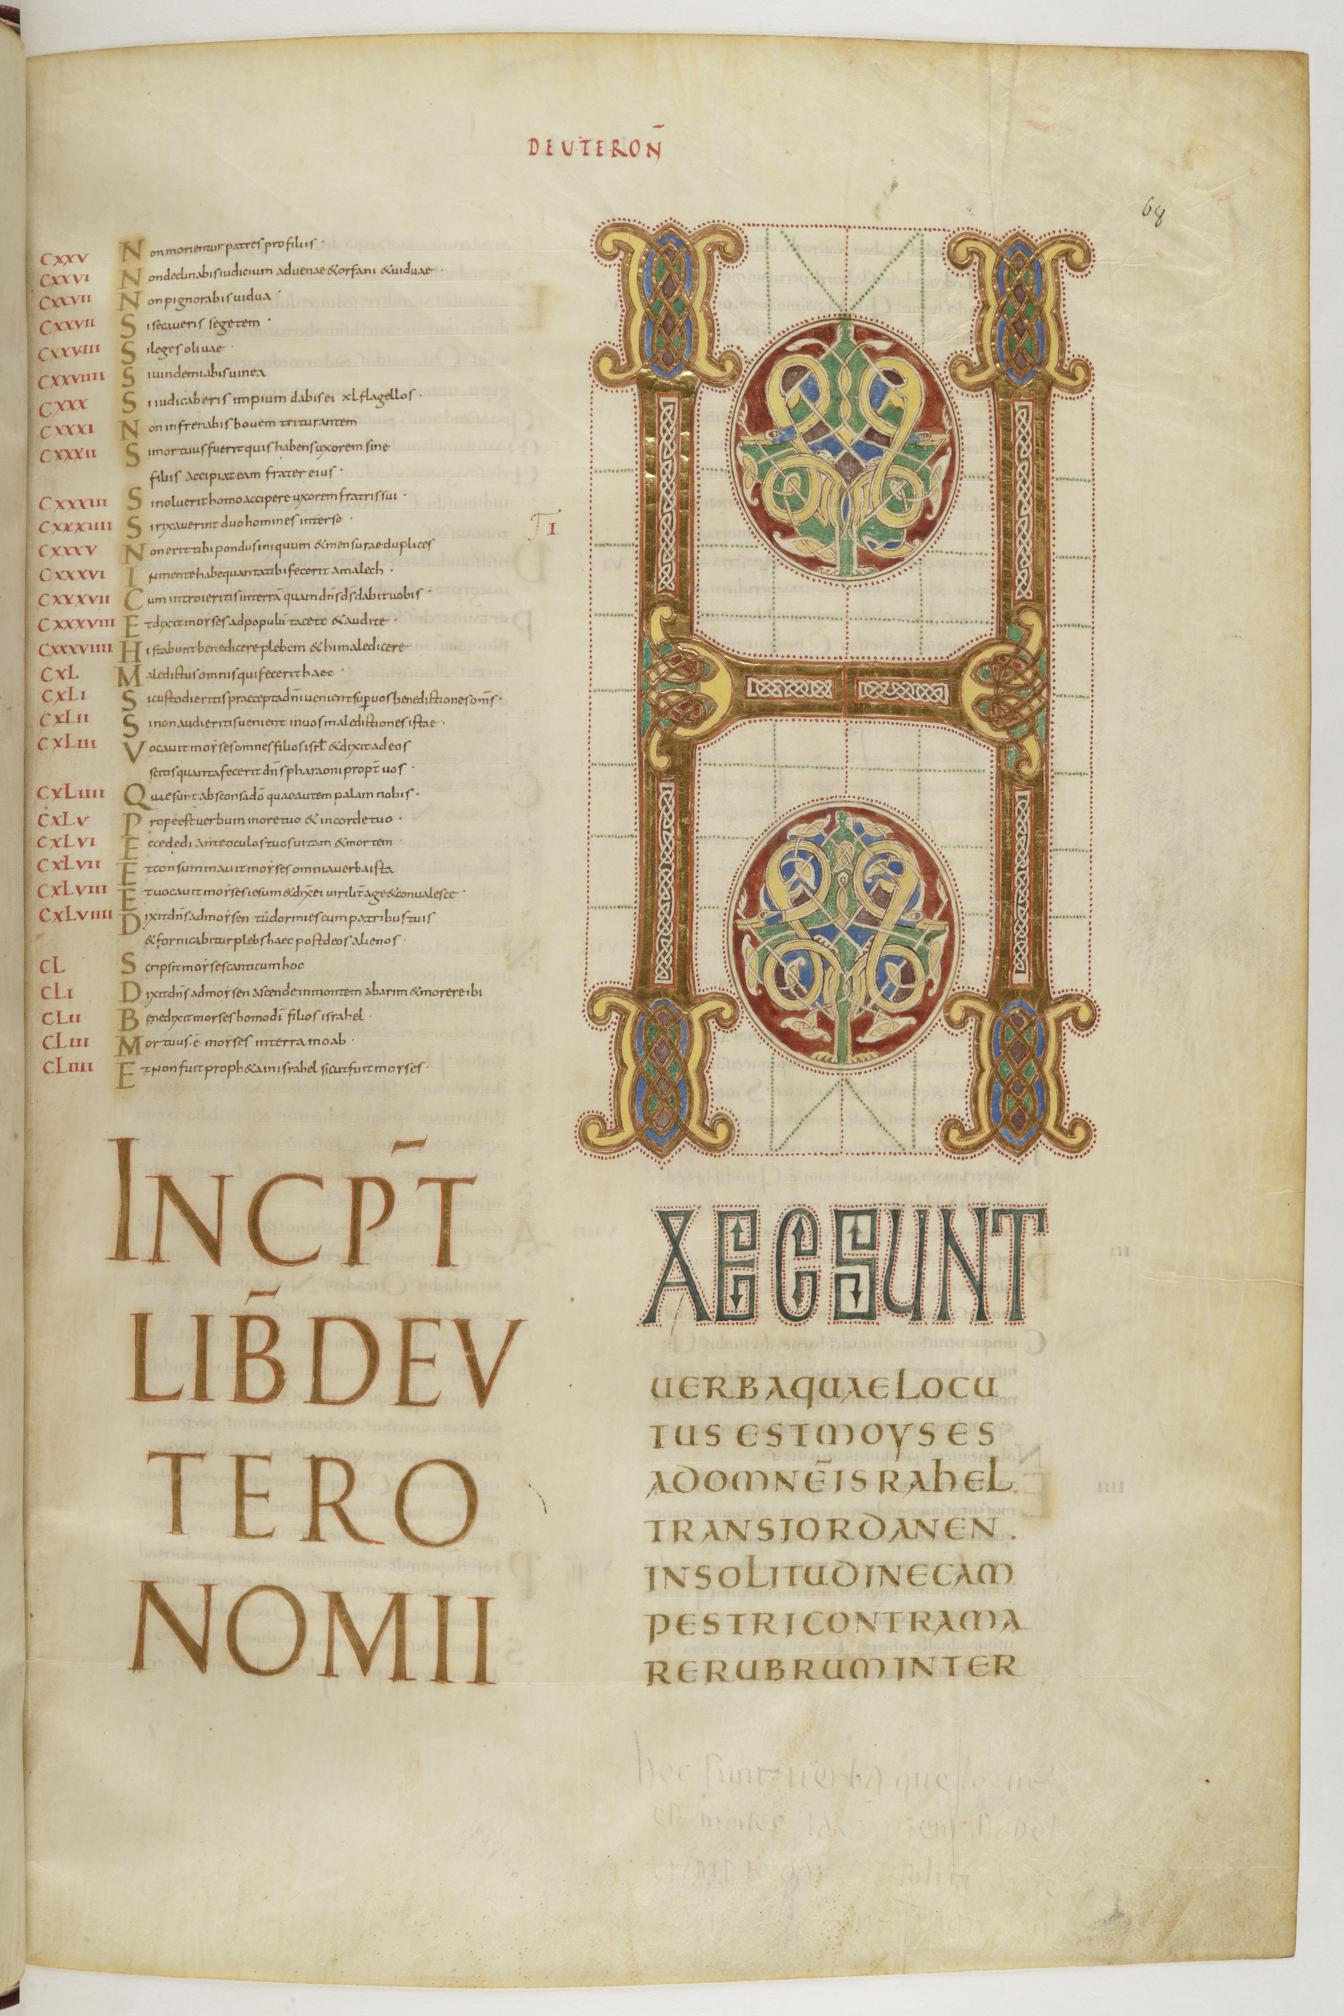 DEUTERON̄
68
CXXV Non morientur patres pro filiis ·
CXXVI Non declinabis iudicium aduenae & orfani & uiduae ·
CXXVII Non pignorabis uidua ·
CXXVII Si secaueris segetem ·
CXXVIII Si leges oliuae ·
CXXVIIII Si uindemiabis uinea
CXXX Si iudicaberis impium dabis ei xl flagellos ·
CXXXI Non infrenabis bouem triturantem
CXXXII Si mortuus fuerit quis habens uxorem sine
filiis accipiat eam frater eius ·
CXXXIII Si noluerit homo accipere uxorem fratris sui ·
CXXXIIII Si rixauerint duo homines inter se ·
CXXXV Non erit tibi pondus iniquum & mensurae duplices
CXXXVI In mente habe quanta tibi fecerit amalech ·
CXXXVII Cum introieritis in terrā quam dn̄s d̄s dabit uobis ·
CXXXVIII Et dixit moyses ad populū tacete & audite ·
CXXXVIIII Hi stabunt benedicere plebem & hi maledicere
CXL Maledictus omnis qui fecerit haec ·
CXLI Si custodieritis praecepta dn̄i uenient sup uos benedictiones om̄s ·
CXLII Si non audieritis uenient in uos maledictiones istae ·
CXLIII Vocauit moyses omnes filios isrl & dixit ad eos
scitis quanta fecerit dn̄s pharaoni propt̄ uos ·
CXLIIII Quae sunt absconsa dō quae autem palam nobis ·
CXLV Prope est uerbum in ore tuo & in corde tuo ·
CXLVI Ecce dedi ante oculos tuos uitam & mortem ·
CXLVII Et consummauit moyses omnia uerba ista
CXLVIII Et uocauit moyses iesum & dix̄ ei uirilit̄ age & conualesce ·
CXLVIIII Dixit dn̄s ad moysen tu dormies cum patribus tuis
& fornicabitur plebs haec post deos alienos ·
CL Scripsit moyses canticum hoc
CLI Dixit dn̄s ad moysen ascende in montem abarim & morere ibi
CLII Benedixit moyses homo dī filios israhel ·
CLIII Mortuus ·ē· moyses in terra moab ·
CLIIII Et non fuit proph&a in israhel sicut fuit moyses ·
INCP̄T
LIB̄ DEV
TERO
NOMII
I
H
AEC SUNT
UERBA QUAE LOCU
TUS EST MOYSES
AD OMNĒ ISRAHEL
TRANS IORDANEN .
IN SOLITUDINE CAM
PESTRI CONTRA MA
RE RUBRUM INTER
hec sunt uerba que locu